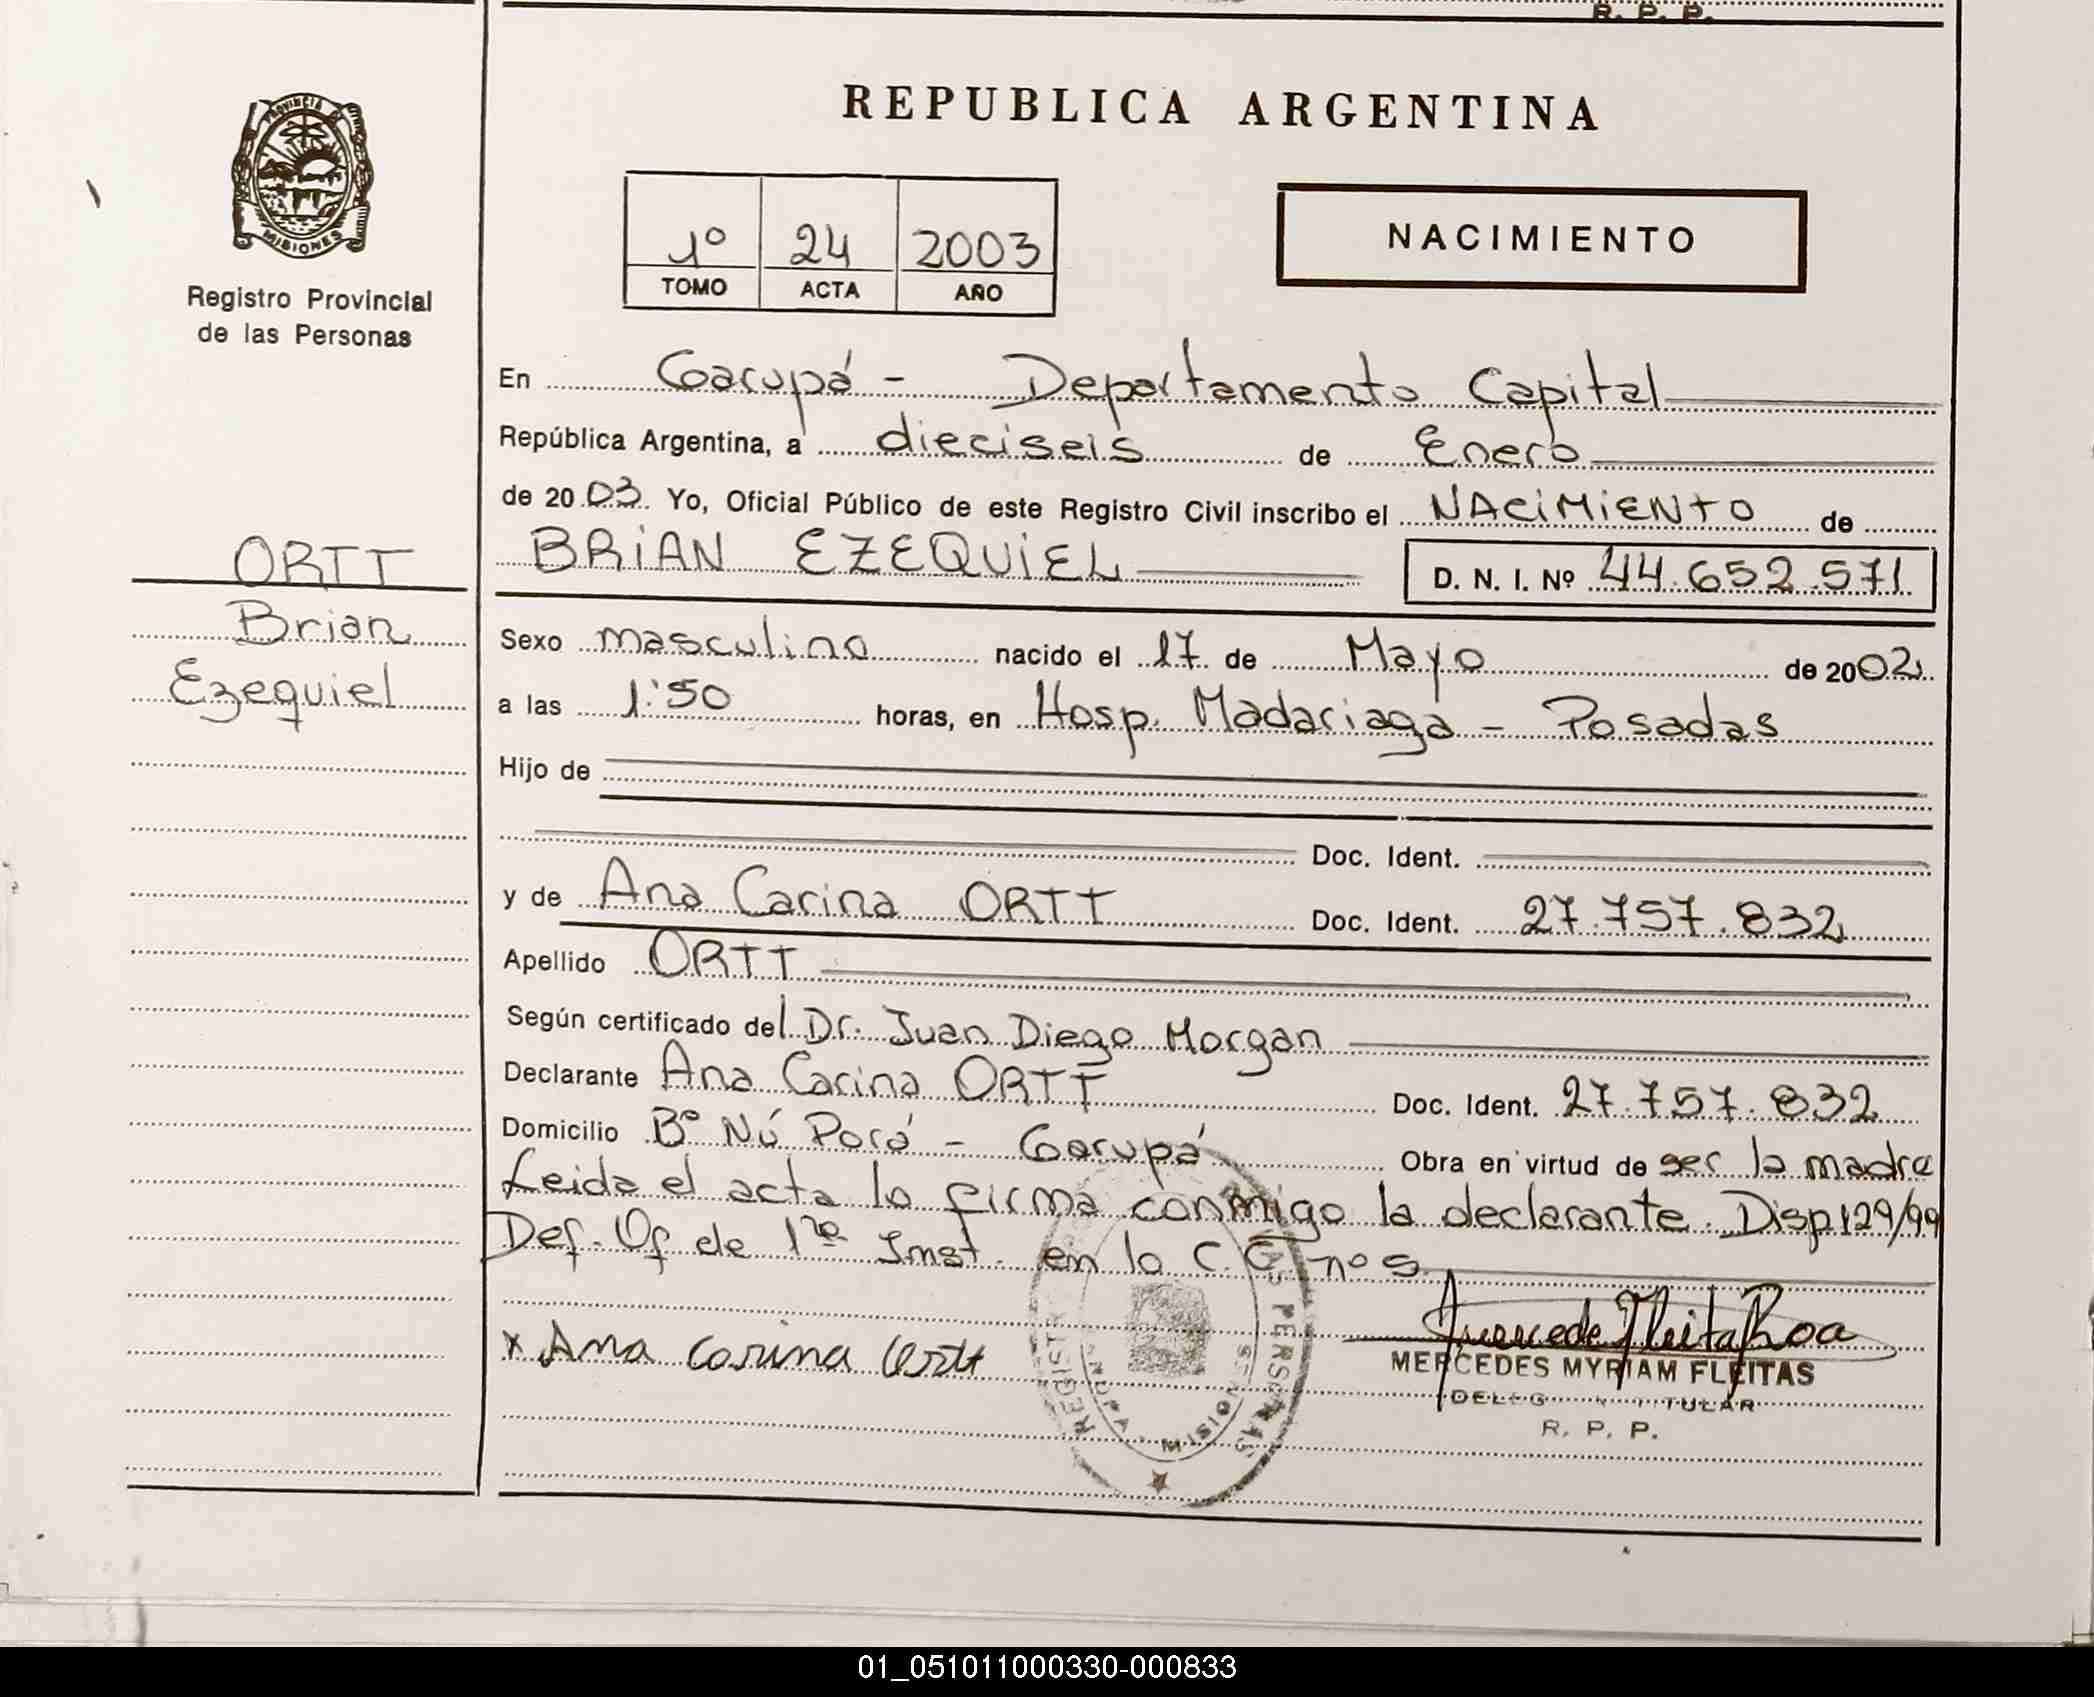 R. P. P.
REPUBLICA ARGENTINA
PROVINCIA D
MISIONES
Registro Provincial
de las Personas
1º 24 2003
TOMO ACTA AÑO
NACIMIENTO
En Garupá - Departamento Capital
República Argentina, a dieciseis de Enero
de 2003. Yo, Oficial Público de este Registro Civil inscribo el NACIMIENTO de
BRIAN EZEQUIEL D. N. I. Nº 44.652.571
ORTT
Brian
Ezequiel
Sexo masculino nacido el 17 de Mayo de 2002
a las 1:50 horas, en Hosp. Madariaga - Posadas
Hijo de
Doc. Ident.
y de Ana Carina ORTT Doc. Ident. 27.757.832
Apellido ORTT
Según certificado del Dr. Juan Diego Morgan
Declarante Ana Carina ORTT Doc. Ident. 27.757.832
Domicilio Bº Ñú Porá - Garupá Obra en virtud de ser la madre
Leida el acta la firma conmigo la declarante. Disp 129/99
Def. Of de 1ra Inst. en lo C.C. nº 5
x Ana Carina Ortt
MERCEDES MYRIAM FLEITAS
R. P. P.
01_051011000330-000833